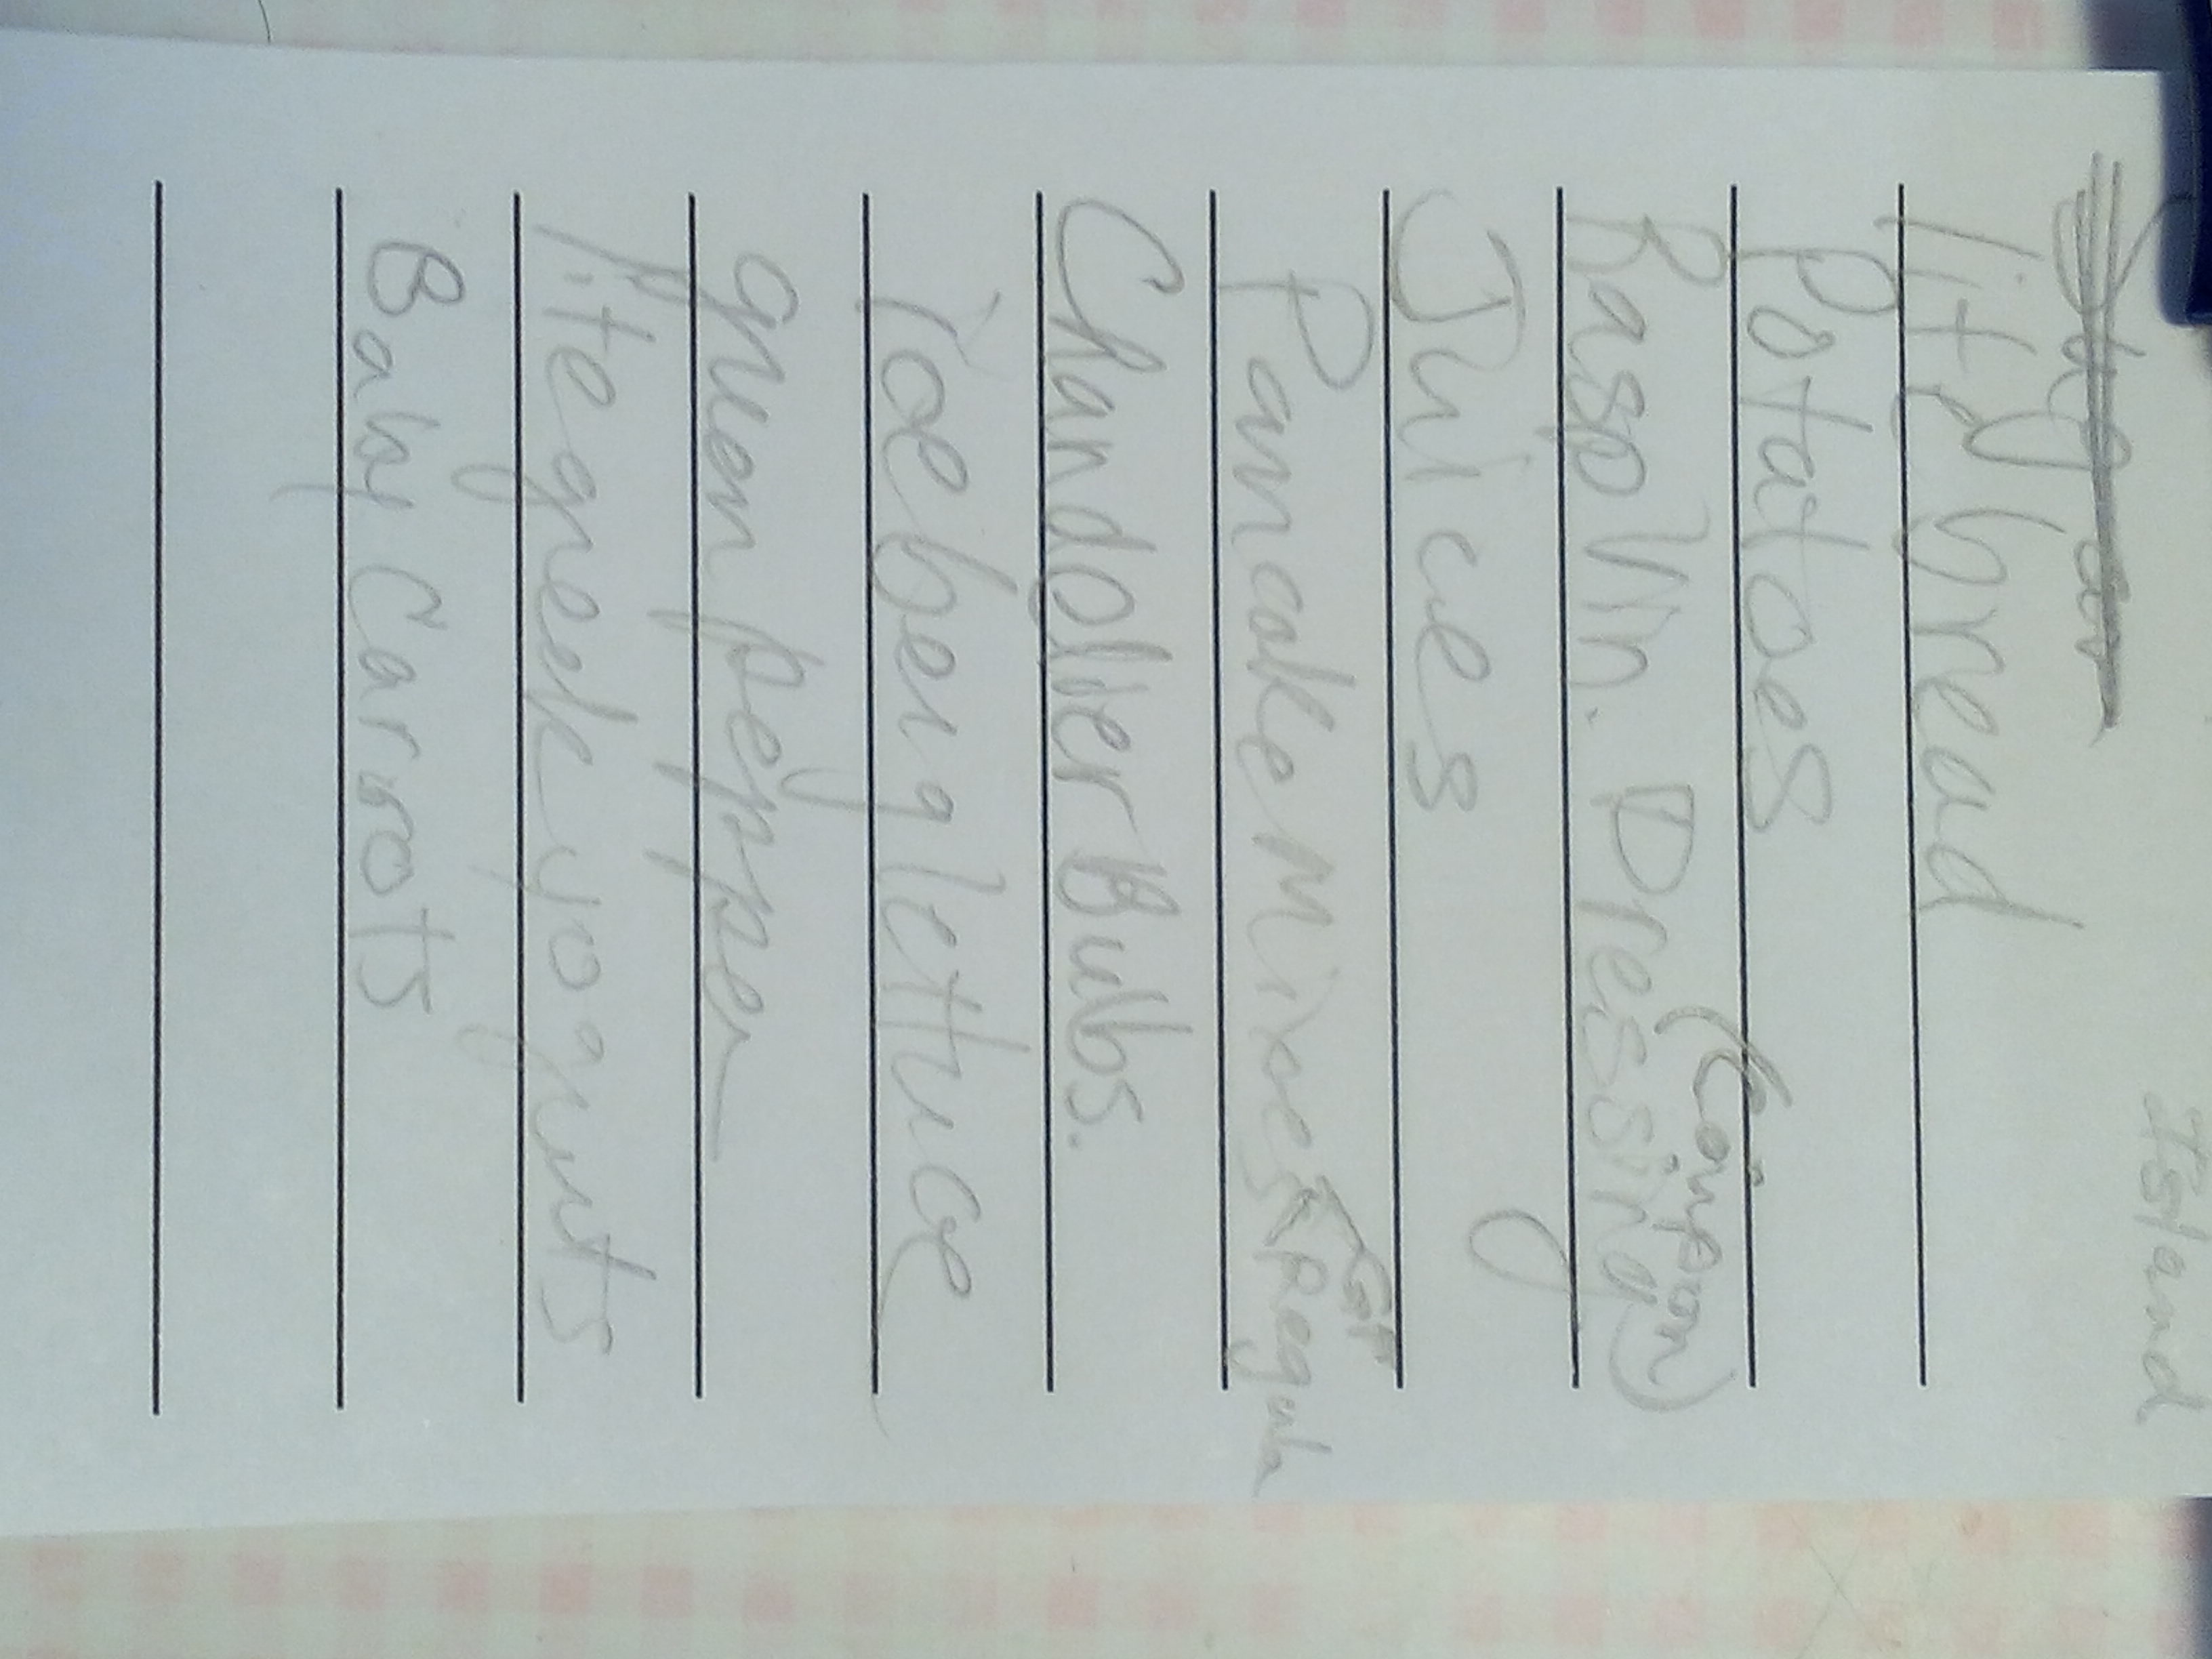 Island
Lite bread
Potatoes
(Coupon)
Rasp Vin. Dressing
Juices
Pancake Mixes
GF
Regular
Chandolier Bulbs.
Iceberg lettuce
green pepper
lite greek yogurts
Baby Carrots